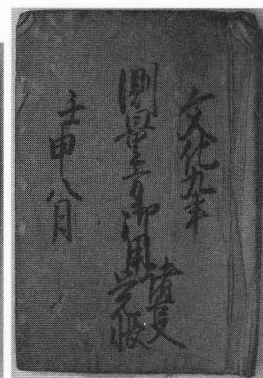 文化九年
測量方御用
覚帳
壬申八月